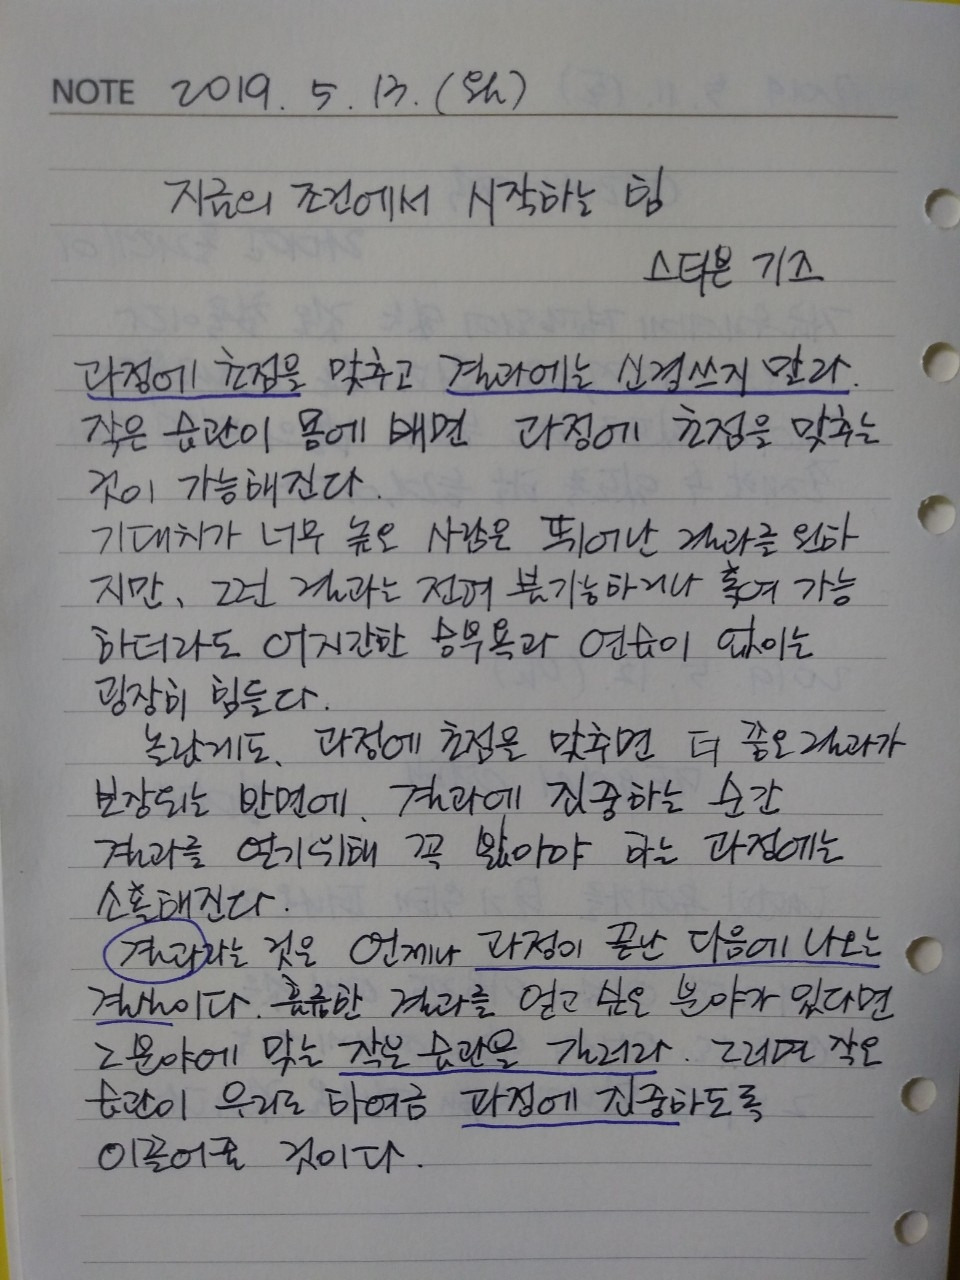 NOTE 2019. 5. 13. (월)
지금의 조건에서 시작하는 힘
스티븐 기즈
과정에 초점을 맞추고 결과에는 신경쓰지 말라.
작은 습관이 몸에 배면 과정에 초점을 맞추는
것이 가능해진다.
기대치가 너무 높은 사람은 뛰어난 결과를 원하
지만, 그런 결과는 전혀 불가능하거나 혹여 가능
하더라도 어지간한 승부욕과 연습이 없이는
굉장히 힘들다.
놀랍게도, 과정에 초점을 맞추면 더 좋은 결과가
보장되는 반면에, 결과에 집중하는 순간
결과를 얻기위해 꼭 밟아야 하는 과정에는
소홀해진다.
결과라는 것은 언제나 과정이 끝난 다음에 나오는
결과이다. 훌륭한 결과를 얻고 싶은 분야가 있다면
그 분야에 맞는 작은 습관을 길러라. 그러면 작은
습관이 우리로 하여금 과정에 집중하도록
이끌어줄 것이다.